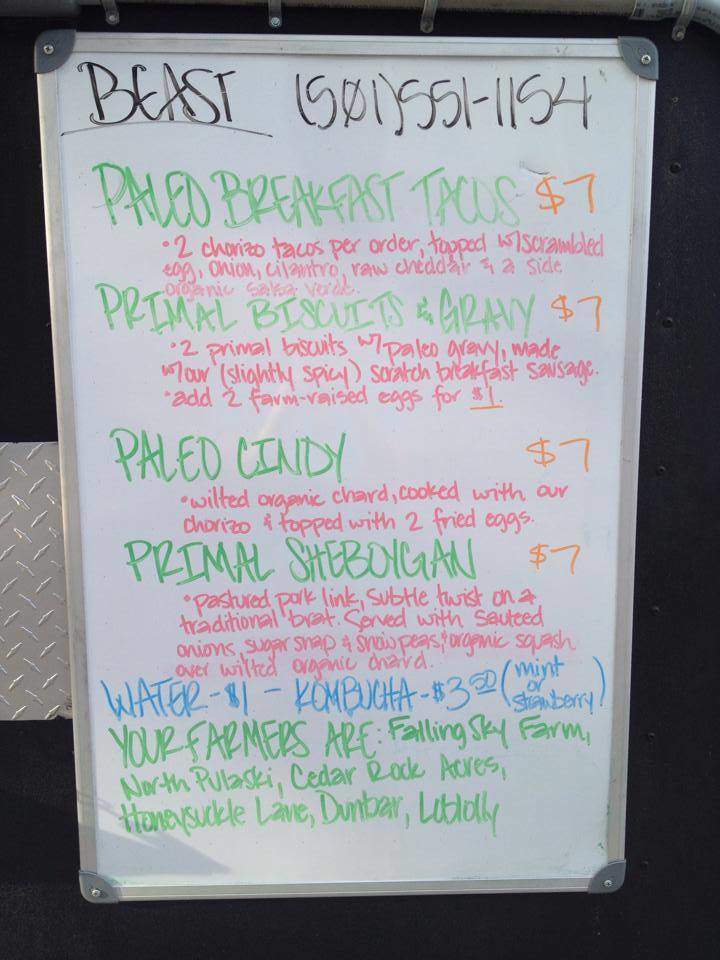 BEAST (501)551-1154
PALEO BREAKFAST TACOS $7
• 2 chorizo tacos per order, topped w/scrambled
egg, onion, cilantro, raw cheddar & a side
organic salsa verde.
PRIMAL BISCUITS & GRAVY $7
• 2 primal biscuits w/ paleo gravy, made
w/our (slightly spicy) scratch breakfast sausage.
• add 2 farm-raised eggs for $1.
PALEO CINDY $7
• wilted organic chard, cooked with our
chorizo & topped with 2 fried eggs.
PRIMAL SHEBOYGAN $7
• pastured pork link, subtle twist on a
traditional brat. Served with sauteed
onions, sugar snap & snow peas, & organic squash
over wilted organic chard.
WATER - $1 - KOMBUCHA - $3.50 (mint or strawberry)
YOUR FARMERS ARE: Falling Sky Farm,
North Pulaski, Cedar Rock Acres,
Honeysuckle Lane, Dunbar, Loblolly